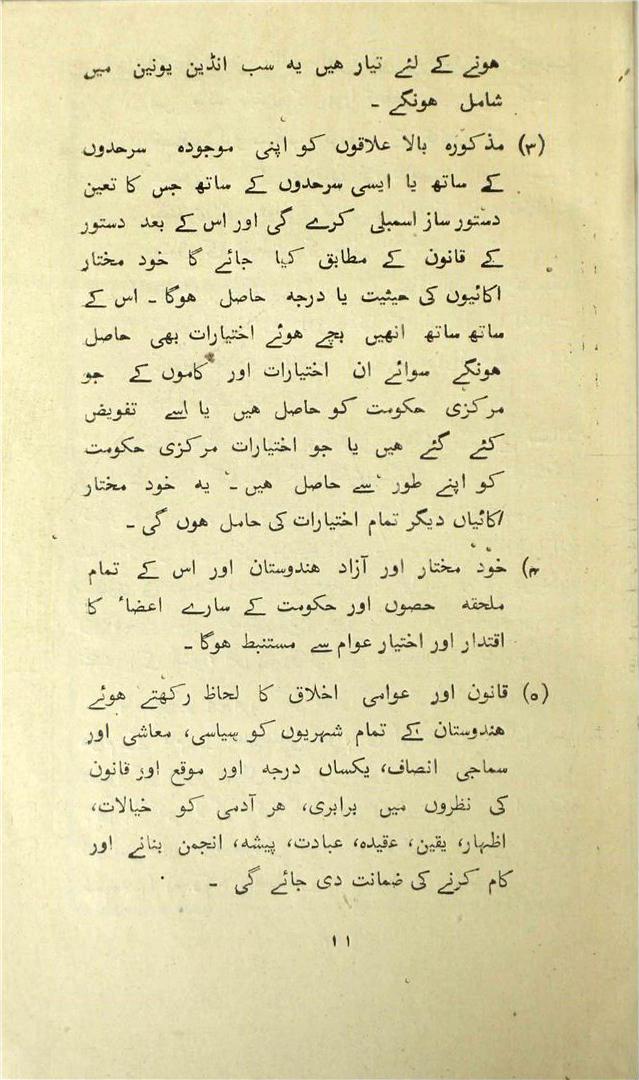 ہونے کے لئے تیار ہیں یہ سب انڈین یونین میں
شامل ہونگے ۔
(۳) مذکورہ بالا علاقوں کو اپنی موجودہ سرحدوں
کے ساتھ یا ایسی سرحدوں کے ساتھ جس کا تعین
دستور ساز اسمبلی کرے گی اور اس کے بعد دستور
کے قانون کے مطابق کیا جائے گا خود مختار
اکائیوں کی حیثیت یا درجہ حاصل ہوگا ۔ اس کے
ساتھ ساتھ انھیں بچے ہوئے اختیارات بھی حاصل
ہونگے سوائے ان اختیارات اور کاموں کے جو
مرکزی حکومت کو حاصل ہیں یا اسے تفویض
کئے گئے ہیں یا جو اختیارات مرکزی حکومت
کو اپنے طور سے حاصل ہیں ۔ یہ خود مختار
اکائیاں دیگر تمام اختیارات کی حامل ہوں گی ۔
۴) خود مختار اور آزاد ہندوستان اور اس کے تمام
ملحقہ حصوں اور حکومت کے سارے اعضاء کا
اقتدار اور اختیار عوام سے مستنبط ہوگا ۔
(۵) قانون اور عوامی اخلاق کا لحاظ رکھتے ہوئے
ہندوستان کے تمام شہریوں کو سیاسی، معاشی اور
سماجی انصاف، یکساں درجہ اور موقع اور قانون
کی نظروں میں برابری، ہر آدمی کو خیالات،
اظہار، یقین، عقیدہ، عبادت، پیشہ، انجمن بنانے اور
کام کرنے کی ضمانت دی جائے گی ۔
۱۱